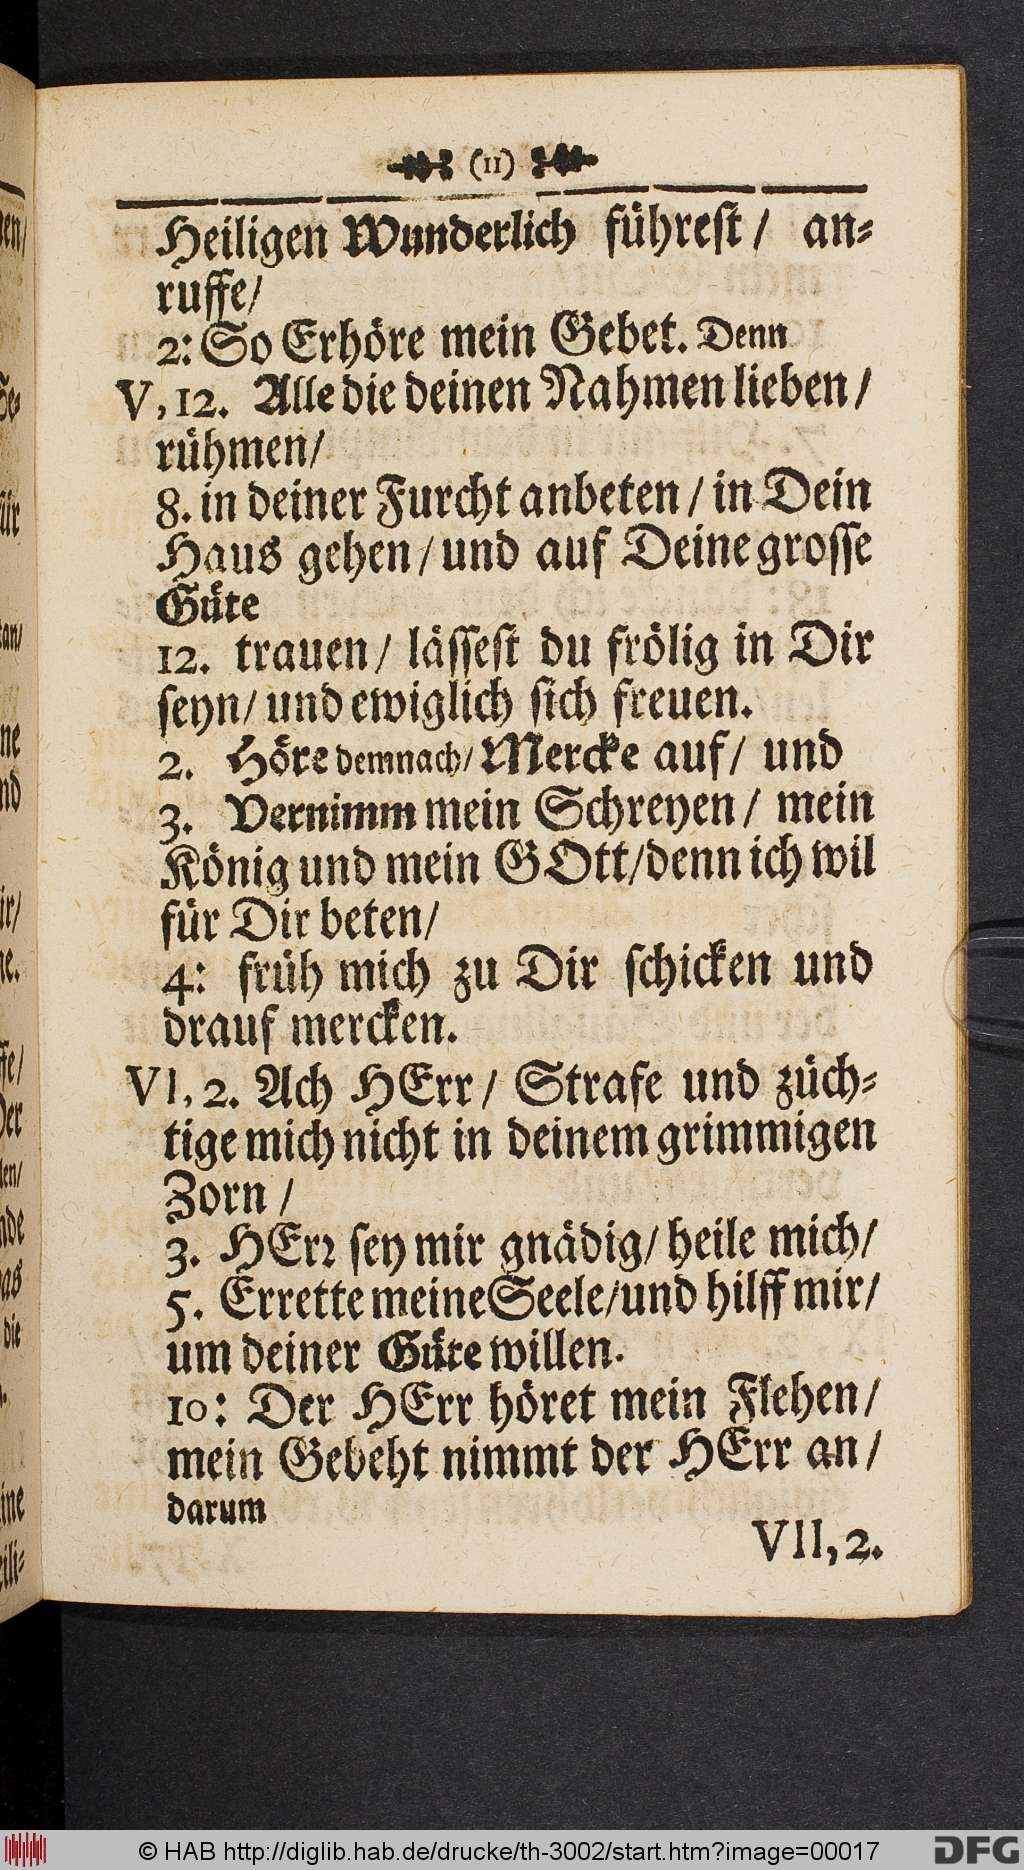 (11)
Heiligen Wunderlich führeſt / an⸗
ruffe/
2: So Erhöre mein Gebet. Denn
V, 12. Alle die deinen Nahmen lieben /
rühmen/
8. in deiner Furcht anbeten / in Dein
Haus gehen / und auf Deine groſſe
Güte
12. trauen / läſſeſt du frölig in Dir
ſeyn / und ewiglich ſich freuen.
2. Höre demnach / Mercke auf / und
3. Vernimm mein Schreyen / mein
König und mein GOtt / denn ich wil
für Dir beten /
4: früh mich zu Dir ſchicken und
drauf mercken.
VI, 2. Ach HErr / Strafe und züch⸗
tige mich nicht in deinem grimmigen
Zorn /
3. HErꝛ ſey mir gnädig / heile mich /
5. Errette meine Seele / und hilff mir /
um deiner Güte willen.
10: Der HErr höret mein Flehen /
mein Gebeht nimmt der HErr an /
darum
VII, 2.
© HAB http://diglib.hab.de/drucke/th-3002/start.htm?image=00017
DFG